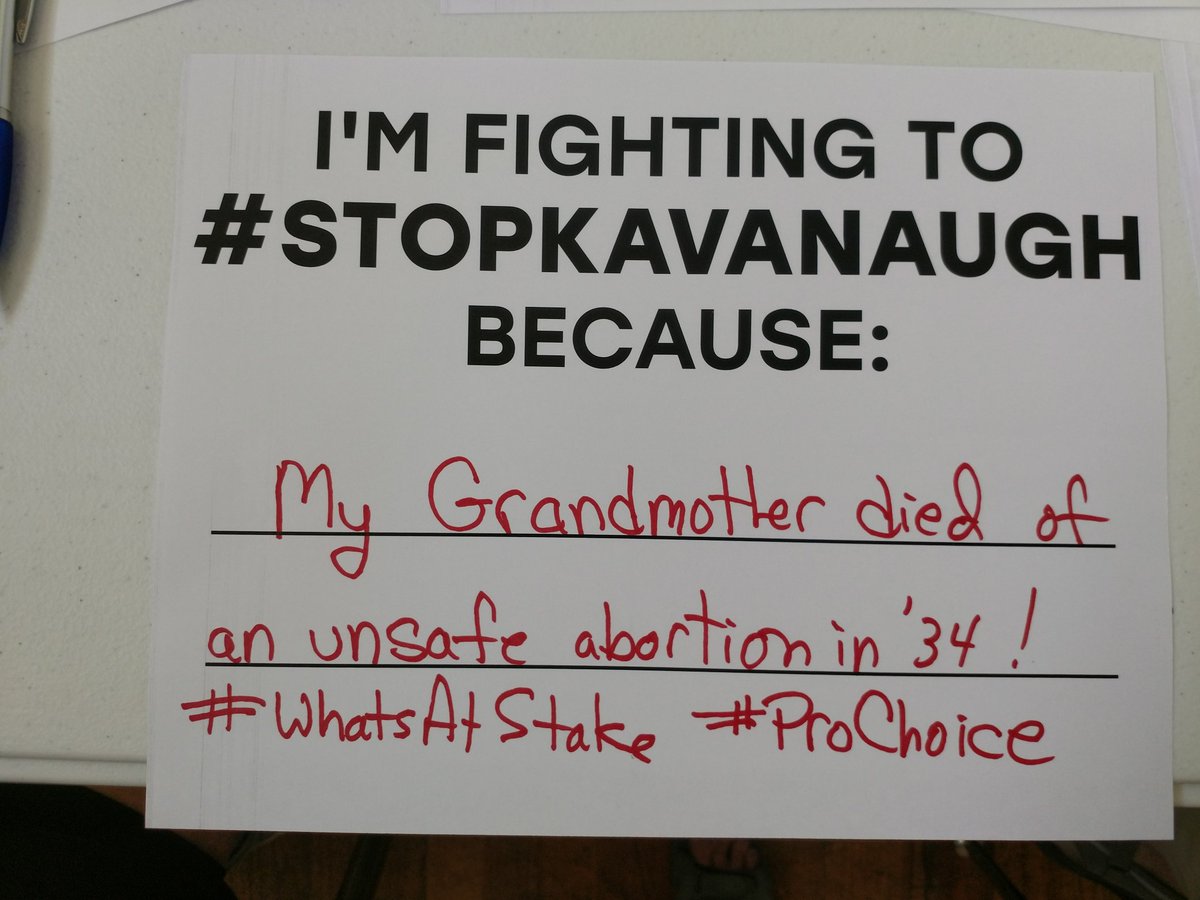 I'M FIGHTING TO
#STOPKAVANAUGH
BECAUSE:
My Grandmother died of
an unsafe abortion in '34!
#WhatsAtStake #ProChoice